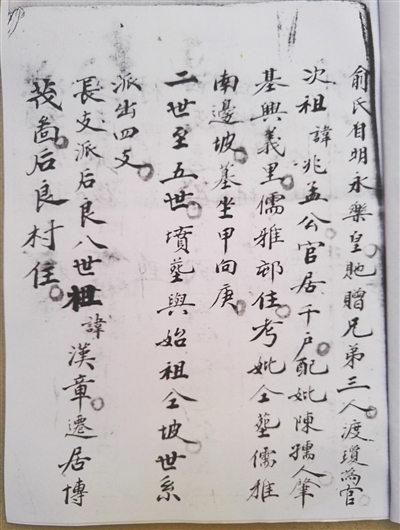 俞氏自明永樂皇貤贈兄弟三人渡瓊為官
次祖諱兆孟公官居千戶配妣陳孺人肇
基興義里儒雅邨住考妣仝塟儒雅
南邊坡墓坐甲向庚
二世至五世墳塋與始祖仝坡世系
派出四支
長支派后良八世祖諱漢章遷居博
茂啚后良村住